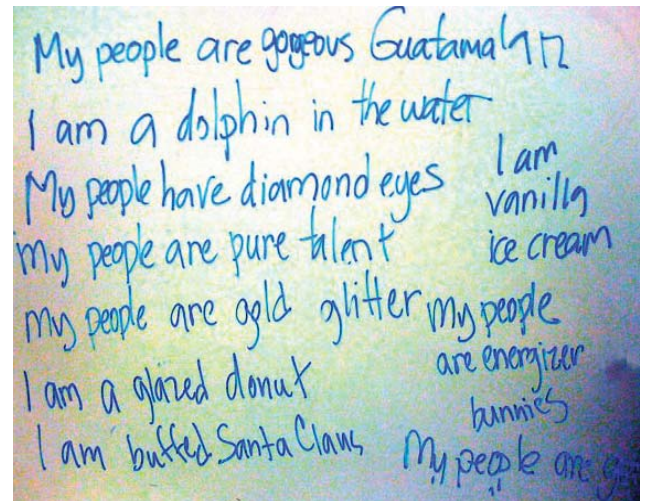 My people are gorgeous Guatamalan
I am a dolphin in the water
My people have diamond eyes
My people are pure talent
My people are gold glitter
I am a glazed donut
I am buffed Santa Claus
I am
vanilla
ice cream
My people
are energizer
bunnies
My people are